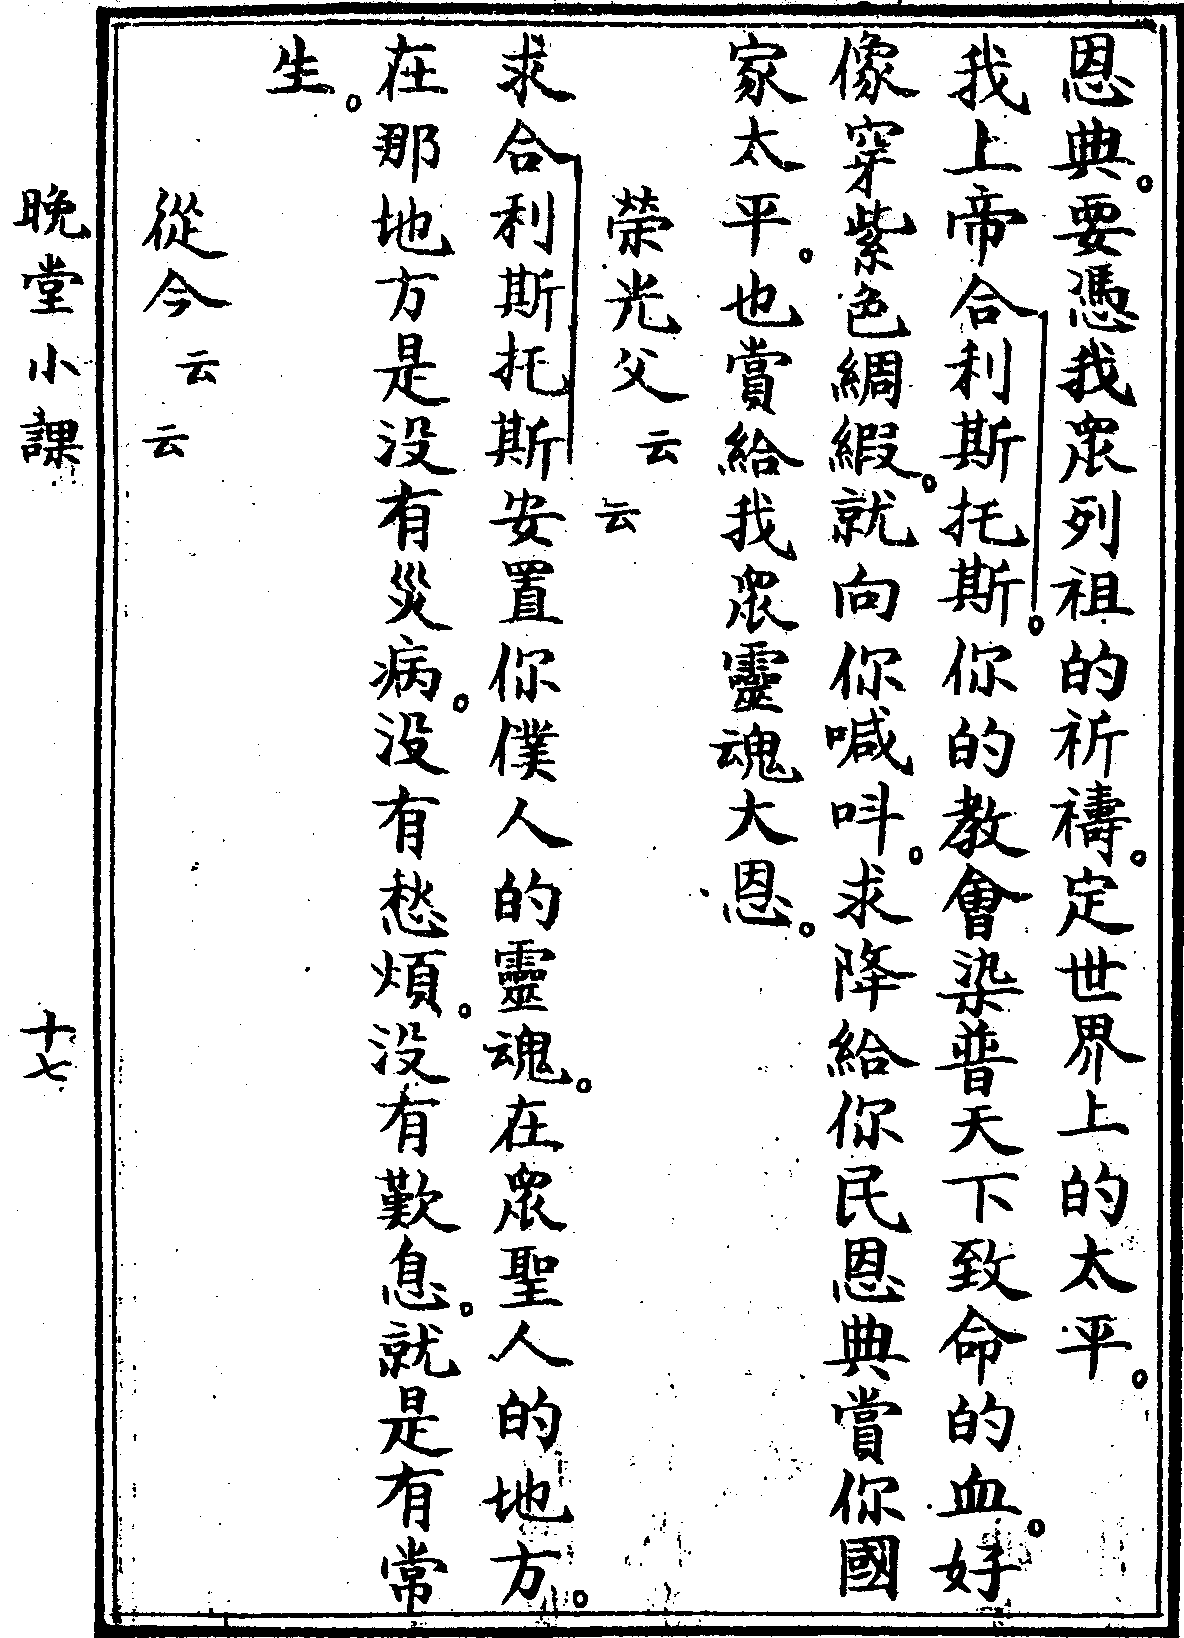 恩典。要憑我眾列祖的祈禱。定世界上的太平。
我上帝合利斯托斯。你的教會染普天下致命的血。好
像穿紫色綢緞。就向你喊叫。求降給你民恩典賞你國
家太平。也賞給我眾靈魂大恩。
榮光父云云
求合利斯托斯安置你僕人的靈魂。在眾聖人的地方。
在那地方是没有災病。没有愁煩。没有歎息。就是有常
生。
從今云云
晚堂小課
十七